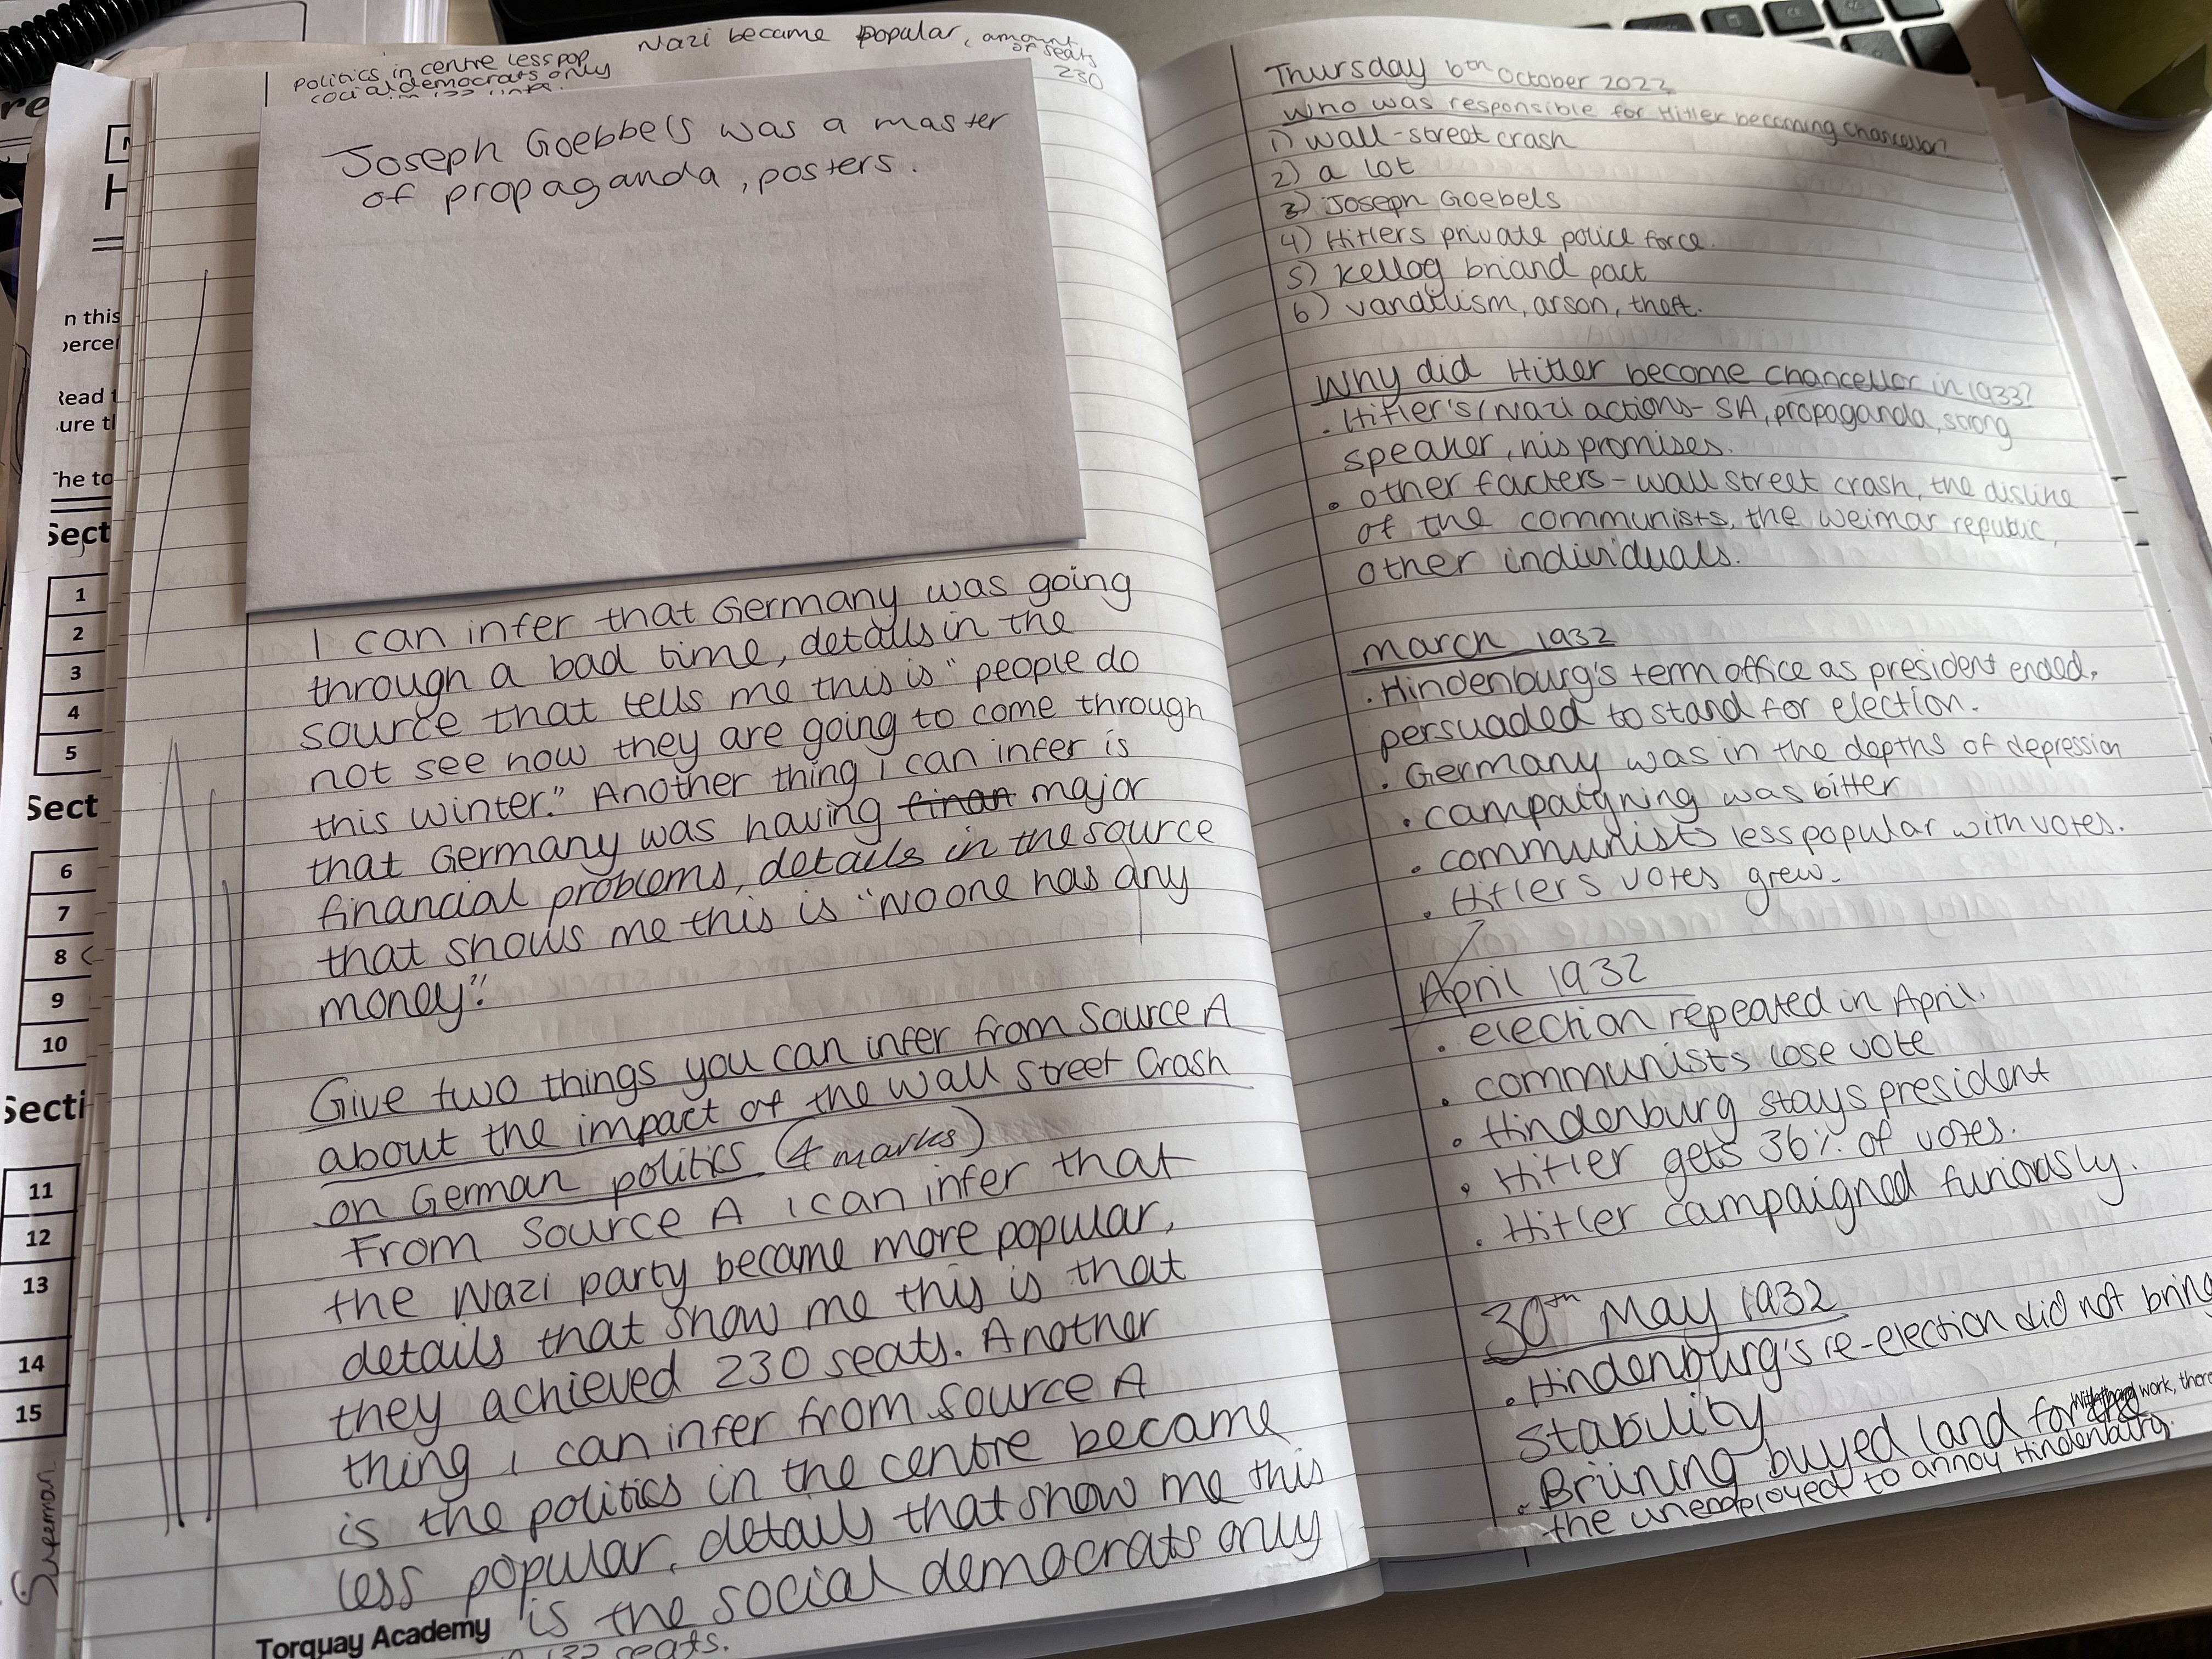 politics in centre less pop
social democrats only
Nazi became popular, amount
of seats
230
Joseph Goebbels was a master
of propaganda, posters.
I can infer that Germany was going
through a bad time, details in the
source that tells me this is "people do
not see how they are going to come through
this winter." Another thing I can infer is
that Germany was having finan major
financial problems, details in the source
that shows me this is "No one has any
money".
Give two things you can infer from Source A
about the impact of the Wall Street Crash
on German politics (4 marks)
From Source A i can infer that
the Nazi party became more popular,
details that show me this is that
they achieved 230 seats. Another
thing i can infer from source A
is the politics in the centre became
less popular, details that show me this
is the social democrats only
133 seats.
Torquay Academy
Thursday 6th October 2022
Who was responsible for Hitler becoming chancellor?
1) wall-street crash
2) a lot
3) Joseph Goebels
4) Hitlers private police force.
5) Kellog briand pact
6) vandilism, arson, theft.
Why did Hitler become chancellor in 1933?
• Hitler's/Nazi actions- SA, propaganda, strong
speaker, his promises.
• other facters - wall street crash, the dislike
of the communists, the weimar republic,
other individuals.
march 1932
• Hindenburg's term office as president ended,
persuaded to stand for election.
• Germany was in the depths of depression
• campaigning was bitter
• communists less popular with votes.
• Hitlers votes grew.
April 1932
• election repeated in April.
• communists lose vote
• Hindenburg stays president
• Hitler gets 36% of votes.
• Hitler campaigned furiously.
30th May 1932
• Hindenburg's re-election did not bring
stability
• Brüning buyed land for work, there
the unemployed to annoy Hindenburg.
n this
percer
Read t
ure tl
The to
Sect
1
2
3
4
5
Sect
6
7
8
9
10
Secti
11
12
13
14
15